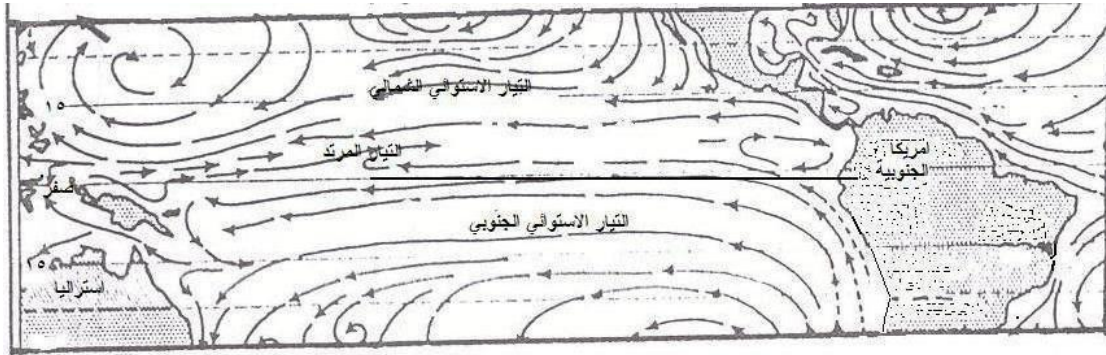 التيار الاستوائي الشمالي
١٥
التيار المرتد
امريكا
الجنوبية
صفر
التيار الاستوائي الجنوبي
١٥
استراليا